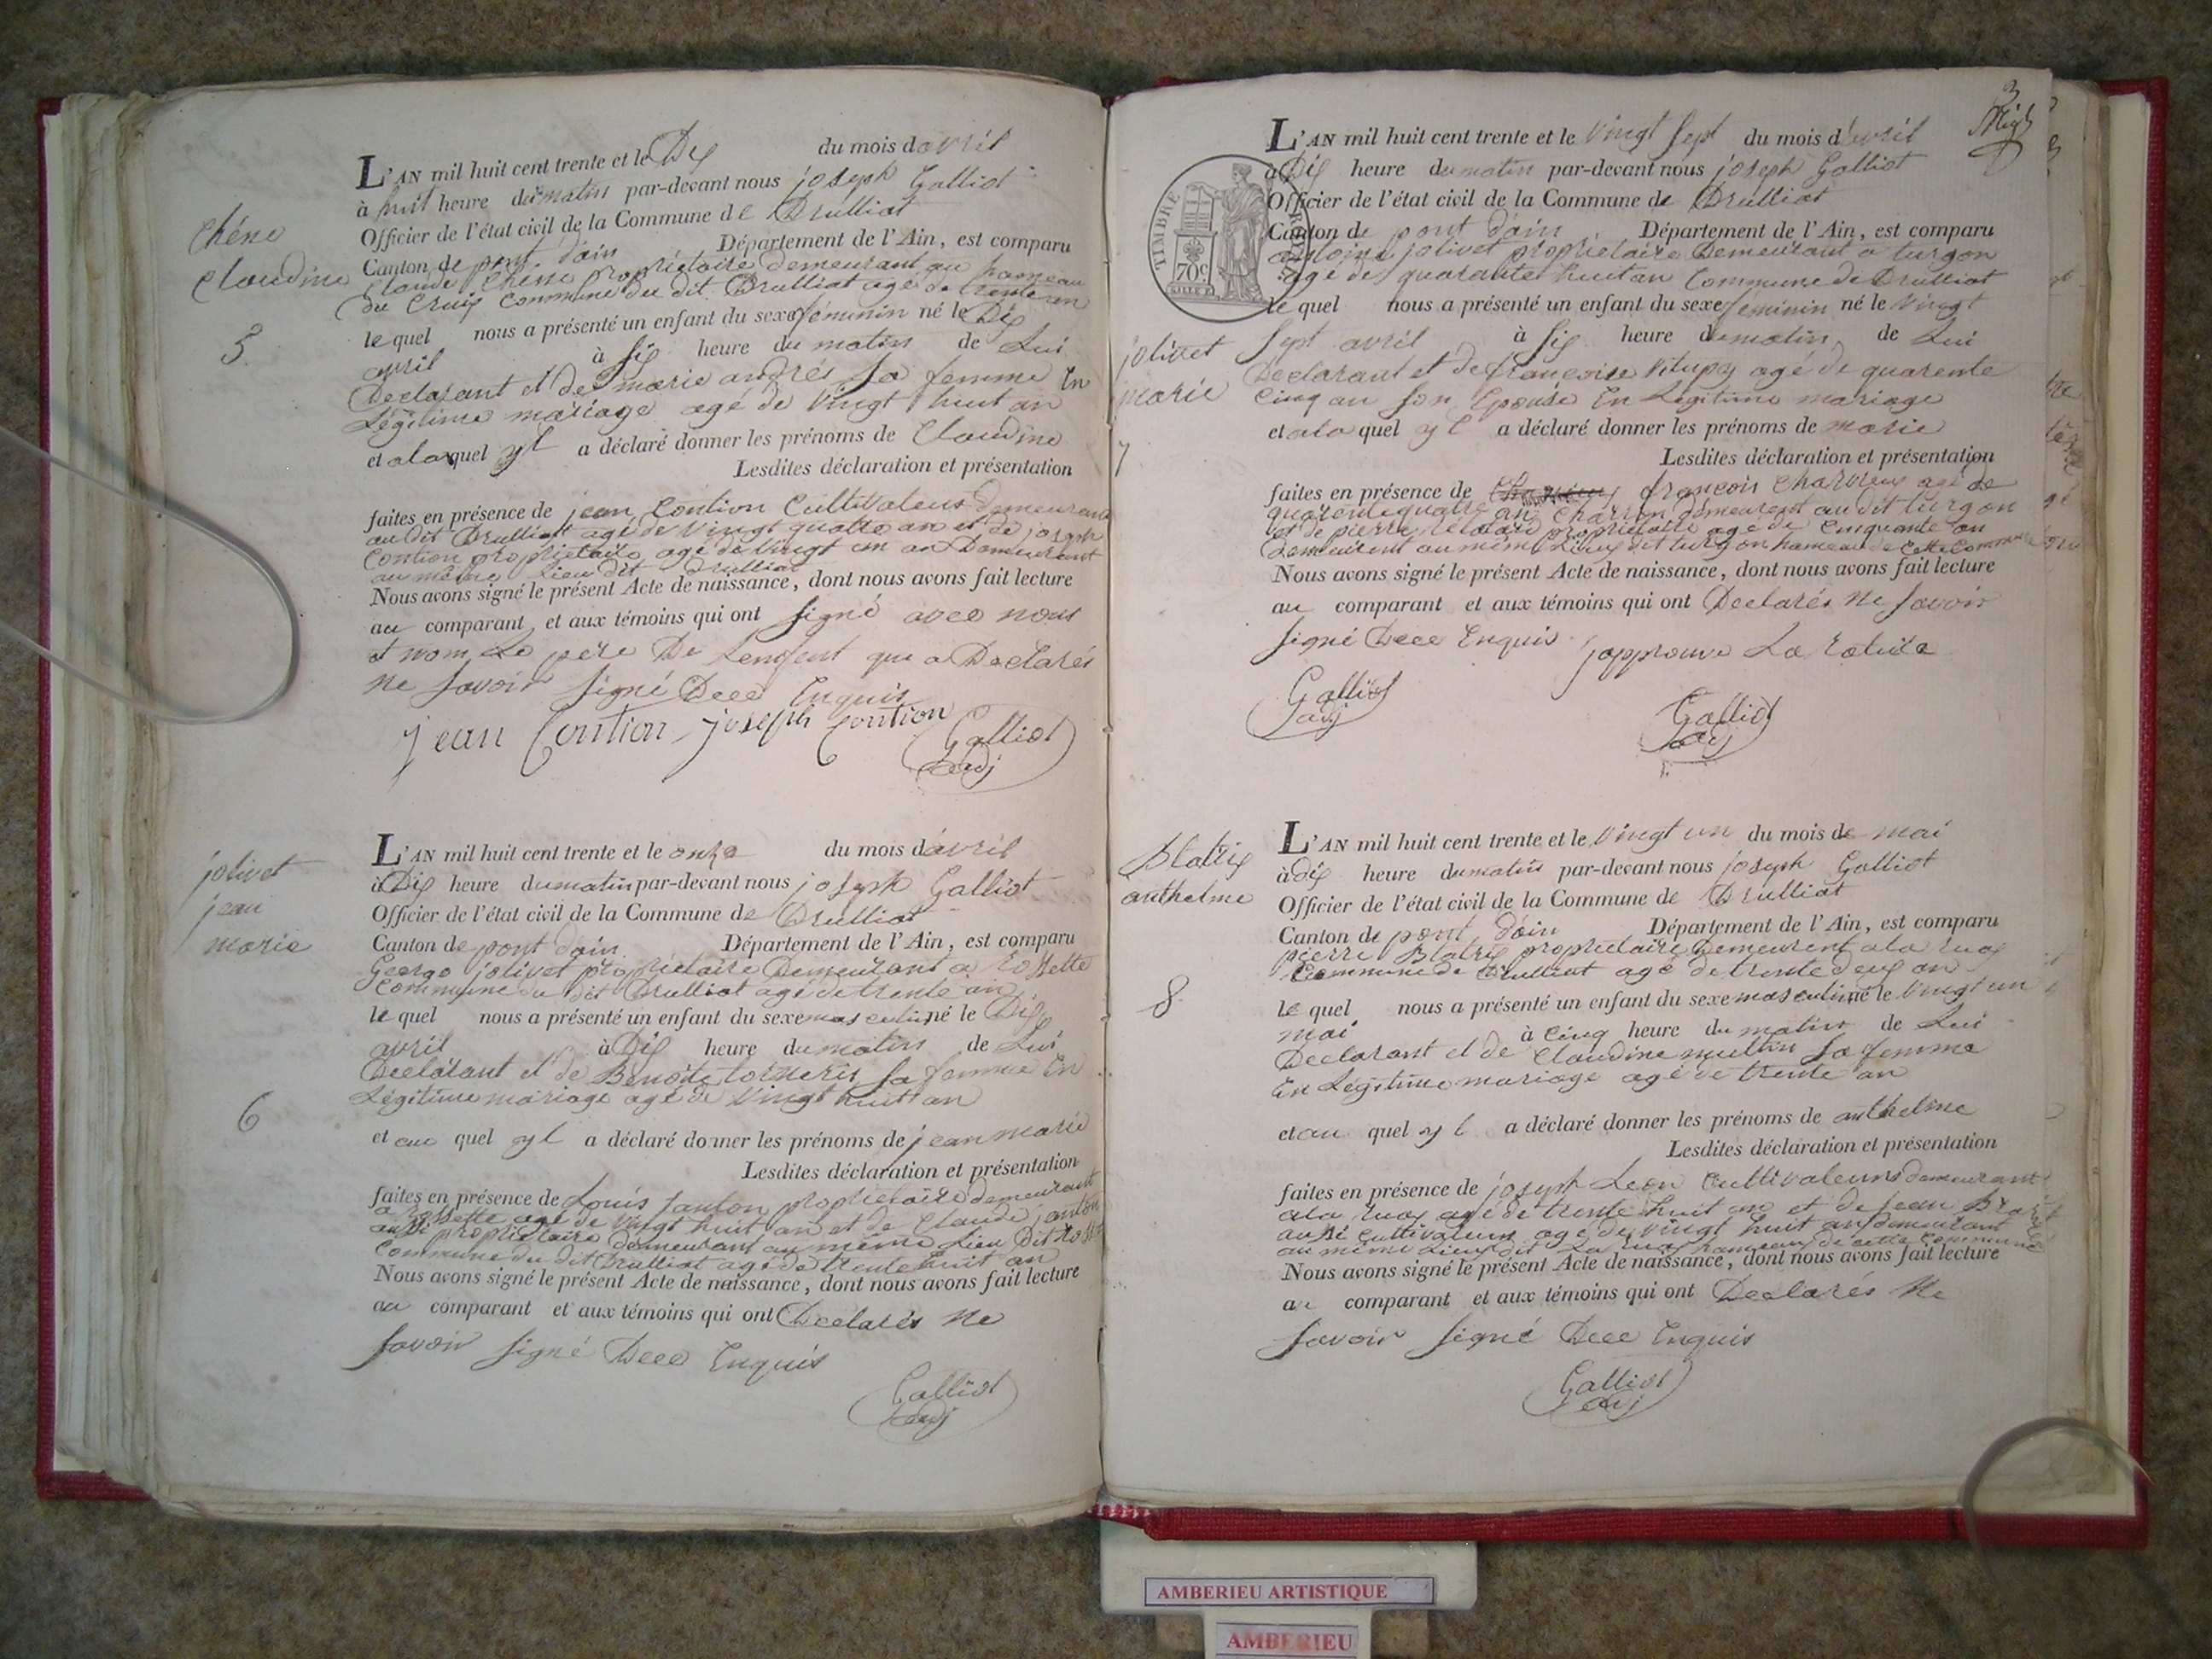 Chéne
Claudine
5.
L'AN mil huit cent trente et le Dix du mois d avril
à huit heure du matin par-devant nous joseph Galliot
Officier de l'état civil de la Commune de Druilliat
Canton de pont d'ain Département de l'Ain, est comparu
Claude Chene propriétaire demeurant au hameau
du Cruix Commune du dit Druilliat agé de trente un
le quel nous a présenté un enfant du sexe féminin né le Dix
avril à six heure du matin de Lui
Declarant et de marie andrés sa femme En
Légitime mariage agé de Vingt huit an
et a la quel yl a déclaré donner les prénoms de Claudine
Lesdites déclaration et présentation
faites en présence de jean Contion Cultivateur demeurant
au dit Druilliat agé de Vingt quatre an et de joseph
Contion propriétaire agé de Vingt un an Demeurant
au même lieu dit Drulliat
Nous avons signé le présent Acte de naissance, dont nous avons fait lecture
au comparant et aux témoins qui ont signé avec nous
et nom Le père De Lenfent que a Declarés
ne savoir signé Dece Enquis
jean Contion joseph Contion Galliot
adj
jolivet
jean
marie
6
L'AN mil huit cent trente et le onze du mois d'avril
à Dix heure du matin par-devant nous joseph Galliot
Officier de l'état civil de la Commune de Druilliat
Canton de pont d'ain Département de l'Ain, est comparu
George jolivet propriétaire Demeurant à rossette
Commune du dit Drulliat agé de trente an
le quel nous a présenté un enfant du sexe masculin né le Dix
avril à Dix heure du matin de Lui
Declarant et de Benoite sa femme En
Légitime mariage agé de Vingt huit an
et au quel yl a déclaré donner les prénoms de jean marie
Lesdites déclaration et présentation
faites en présence de Louis janton propriétaire demeurant
a rossette agé de Vingt huit an et de Claude janton
aussi propriétaire demeurant au même Lieu Dit
Commune du dit Drulliat agé de trente huit an
Nous avons signé le présent Acte de naissance, dont nous avons fait lecture
au comparant et aux témoins qui ont Declarés Ne
savoir signé Dece Enquis
Galliot
adj
3
TIMBRE ROYAL
70c
jolivet
marie
7
L'AN mil huit cent trente et le Vingt sept du mois d'avril
à Dix heure du matin par-devant nous joseph Galliot
Officier de l'état civil de la Commune de Drulliat
Canton de pont d'ain Département de l'Ain, est comparu
antoine jolivet propriétaire Demeurant à turgon
agé de quarante huit an Commune de Drulliat
le quel nous a présenté un enfant du sexe féminin né le Vingt
sept avril à six heure du matin de Lui
Declarant et de françoise agé de quarente
Cinq an son Epouse En Légitime mariage
et a la quel yl a déclaré donner les prénoms de marie
Lesdites déclaration et présentation
faites en présence de françois Charvieux agé de
quarente quatre an demeurent au dit turgon
et de pierre propriétaire agé de Cinquante an
Demeurent au même Lieux dit turgon hameau de cette Commune
Nous avons signé le présent Acte de naissance, dont nous avons fait lecture
au comparant et aux témoins qui ont Declarés Ne savoir
signé Dece Enquis japprouve La rature
Galliot
adj
Galliot
adj
Blatrix
anthelme
8
L'AN mil huit cent trente et le Vingt un du mois de mai
à dix heure du matin par-devant nous joseph Galliot
Officier de l'état civil de la Commune de Drulliat
Canton de pont d'ain Département de l'Ain, est comparu
pierre Blatrix propriétaire Demeurent a la ruax
Commune de Drulliat agé de trente deux an
le quel nous a présenté un enfant du sexe masculin né le Vingt un
mai à Cinq heure du matin de Lui
Declarant et de Claudine sa femme
En Légitime mariage agé de trente an
et au quel yl a déclaré donner les prénoms de anthelme
Lesdites déclaration et présentation
faites en présence de joseph Leon Cultivateur demeurant
a la ruax agé de trente huit an et de jean
aussi Cultivateur agé de Vingt huit an demeurant
au même Lieux dit La ruax hameau de cette commune
Nous avons signé le présent Acte de naissance, dont nous avons fait lecture
au comparant et aux témoins qui ont Declarés Ne
savoir signé Dece Enquis
Galliot
adj
AMBERIEU ARTISTIQUE
AMBERIEU